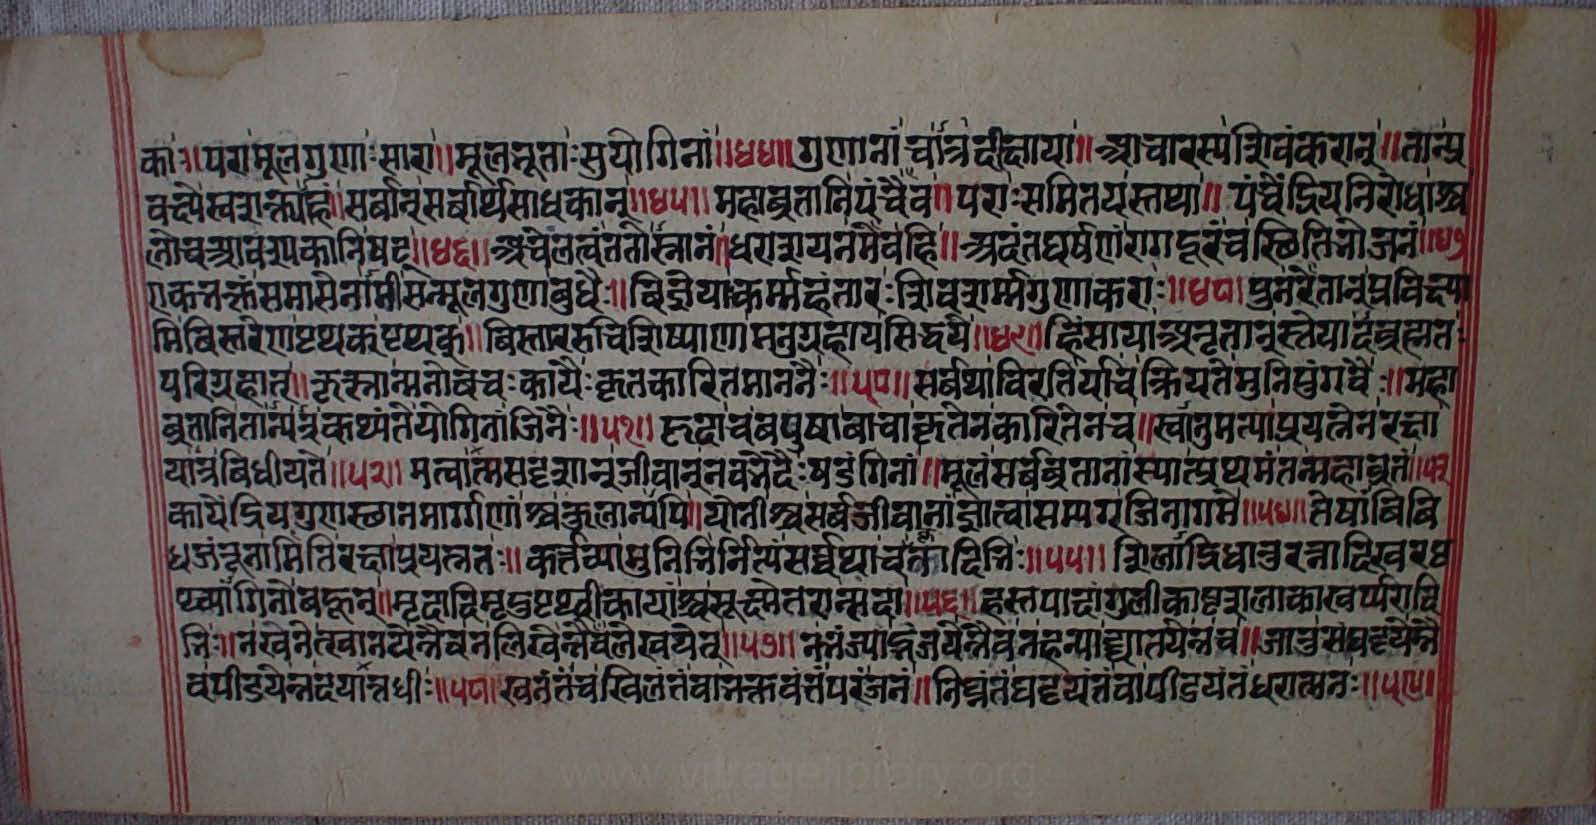 काः॥परामूलगुणाःसारा॥मूलभूताःसुयोगिनां॥४४॥गुणानांचात्रदीक्षाया॥आचारस्यशिवंकरान्॥तान्प्र
वक्ष्येस्वशक्त्याहं॥सर्बान्सर्बार्थसाधकान्॥४५॥महाब्रतानिपंचैव॥पराःसमितयस्तथा॥पंचैंद्रियनिरोधाश्च
लोचआवश्यकानिषट्॥४६॥अचेलत्वंततोस्नानं॥धराशयनमेवहि॥अदंतघर्षणंरागदूरंचस्थितिभोजनं॥४७
एकभक्तंसमासेनामीसन्मूलगुणाबुधैः॥विज्ञेयाकर्म्महंतारःशिवशर्म्मगुणाकराः॥४८॥पुनरेतान्प्रविक्ष्या
मिविस्तरेणपृथक्पृथक्॥बिस्ताररुचिशिष्याणामनुग्रहायसिद्धये॥४९॥हिंसायाअनृतान्स्तेयादब्रह्मतः
परिग्रहात्॥कृत्स्नान्मनोबचःकायैःकृतकारितमाननैः॥५०॥सर्बथाविरतिर्याचक्रियतेमुनिपुंगवैः॥महा
ब्रतानितान्यत्रकथ्यंतेयोगिनांजिनैः॥५१॥हृदाचबपुषाबाचाकृतेनकारितेनच॥स्वानुमत्याप्रयत्नेनरक्षा
यात्रबिधीयते॥५२॥मत्वात्मसदृशान्जीवान्नवभेदैःषडंगिनां॥मूलंसर्बब्रतानांस्यात्प्रथमंतन्महाब्रतं॥५३
कायेंद्रियगुणस्थानमार्ग्गणाश्चकुलान्यपि॥योनीश्चसर्बजीवानांज्ञात्वासम्यग्जिनागमे॥५४॥तेषांबिबि
धजंतूनामितिरक्षाप्रयत्नतः॥कर्त्तव्यामुनिभिर्नित्यंसर्ब्बथाचक्तादिभिः॥५५॥शिलाद्रिधातुरत्नादिखरपृ
थ्व्यांगिनोबहून्॥मृदादिमृदुपृथ्वीकायांश्चसूक्ष्मेतरान्सदा॥५६॥हस्तपादांगुलीकाष्टशलाकाखर्प्परादि
भिः॥नखनेत्खानयेन्नैवनलिखेन्नैवलेखयेत्॥५७॥नभंज्याद्भंजयेन्नैवनहन्याद्घातयेन्नच॥जातुसंघट्टयेन्नै
वपीडयेन्नदयार्त्रधीः॥५८॥खनंतंचखिलंतंवाभक्तवंतंपरंजनं॥निघ्नंतंघट्टयंतंवापीडयंतंधरात्मनः॥५९॥